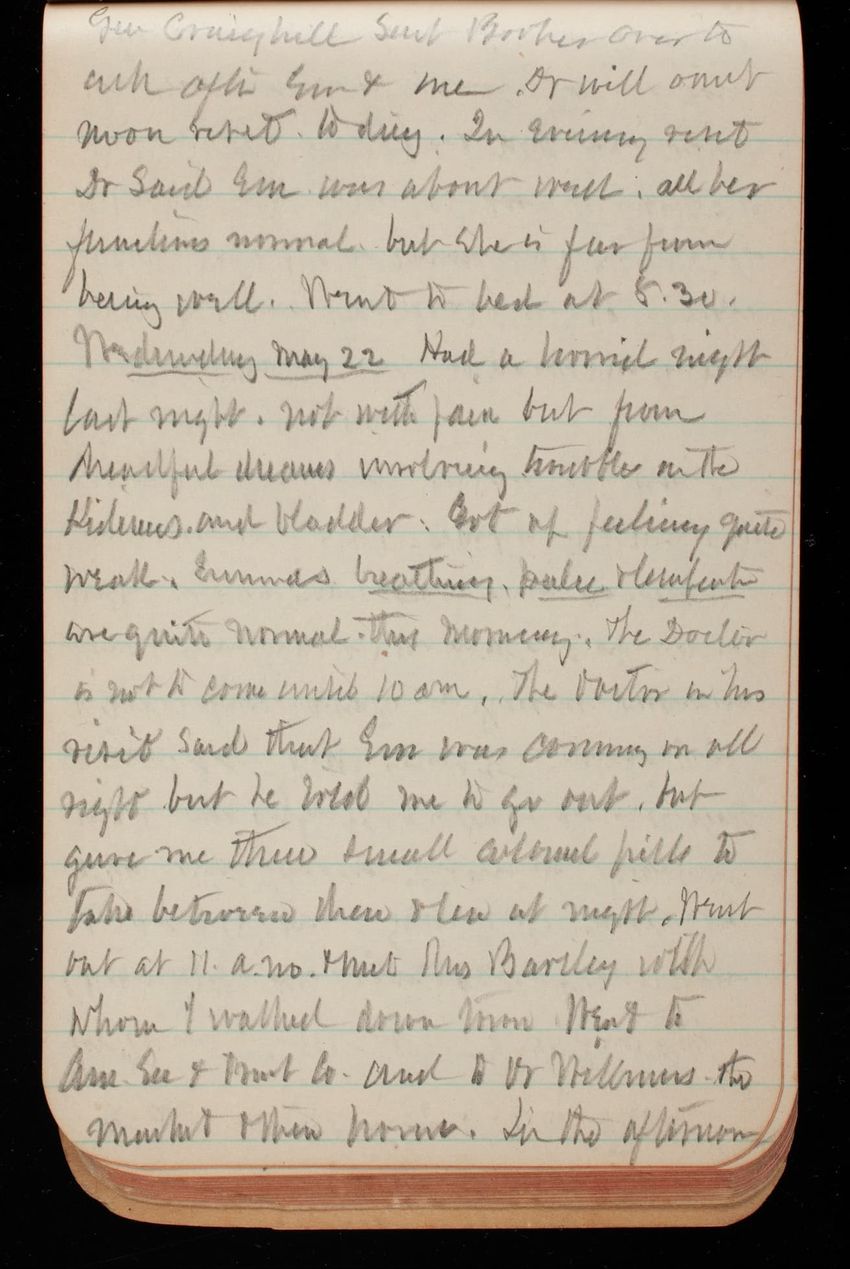 Gen Craighill sent Barber over to
ask after Em & me. Dr will omit
noon visit to day. In evening visit
Dr said Em was about well. all her
functions normal but she is far from
being well. Went to bed at 8.30.
Wednesday May 22 Had a horrid night
last night. not with pain but from
dreadful dreams involving trouble on the
Kidneys. and bladder. Got up feeling quite
weak. Emmas breathing, pulse &
are quite normal this morning. The Doctor
is not to come until 10 am. The doctor in his
visit said that Em was coming on all
right but he told me to go out, but
gave me three small calomel pills to
take between then & ten at night. Went
out at 11. a.m. & met Bartley with
whom I walked down town Went to
Am Sec & Trust Co. and to Dr the
market & then home. In the afternoon